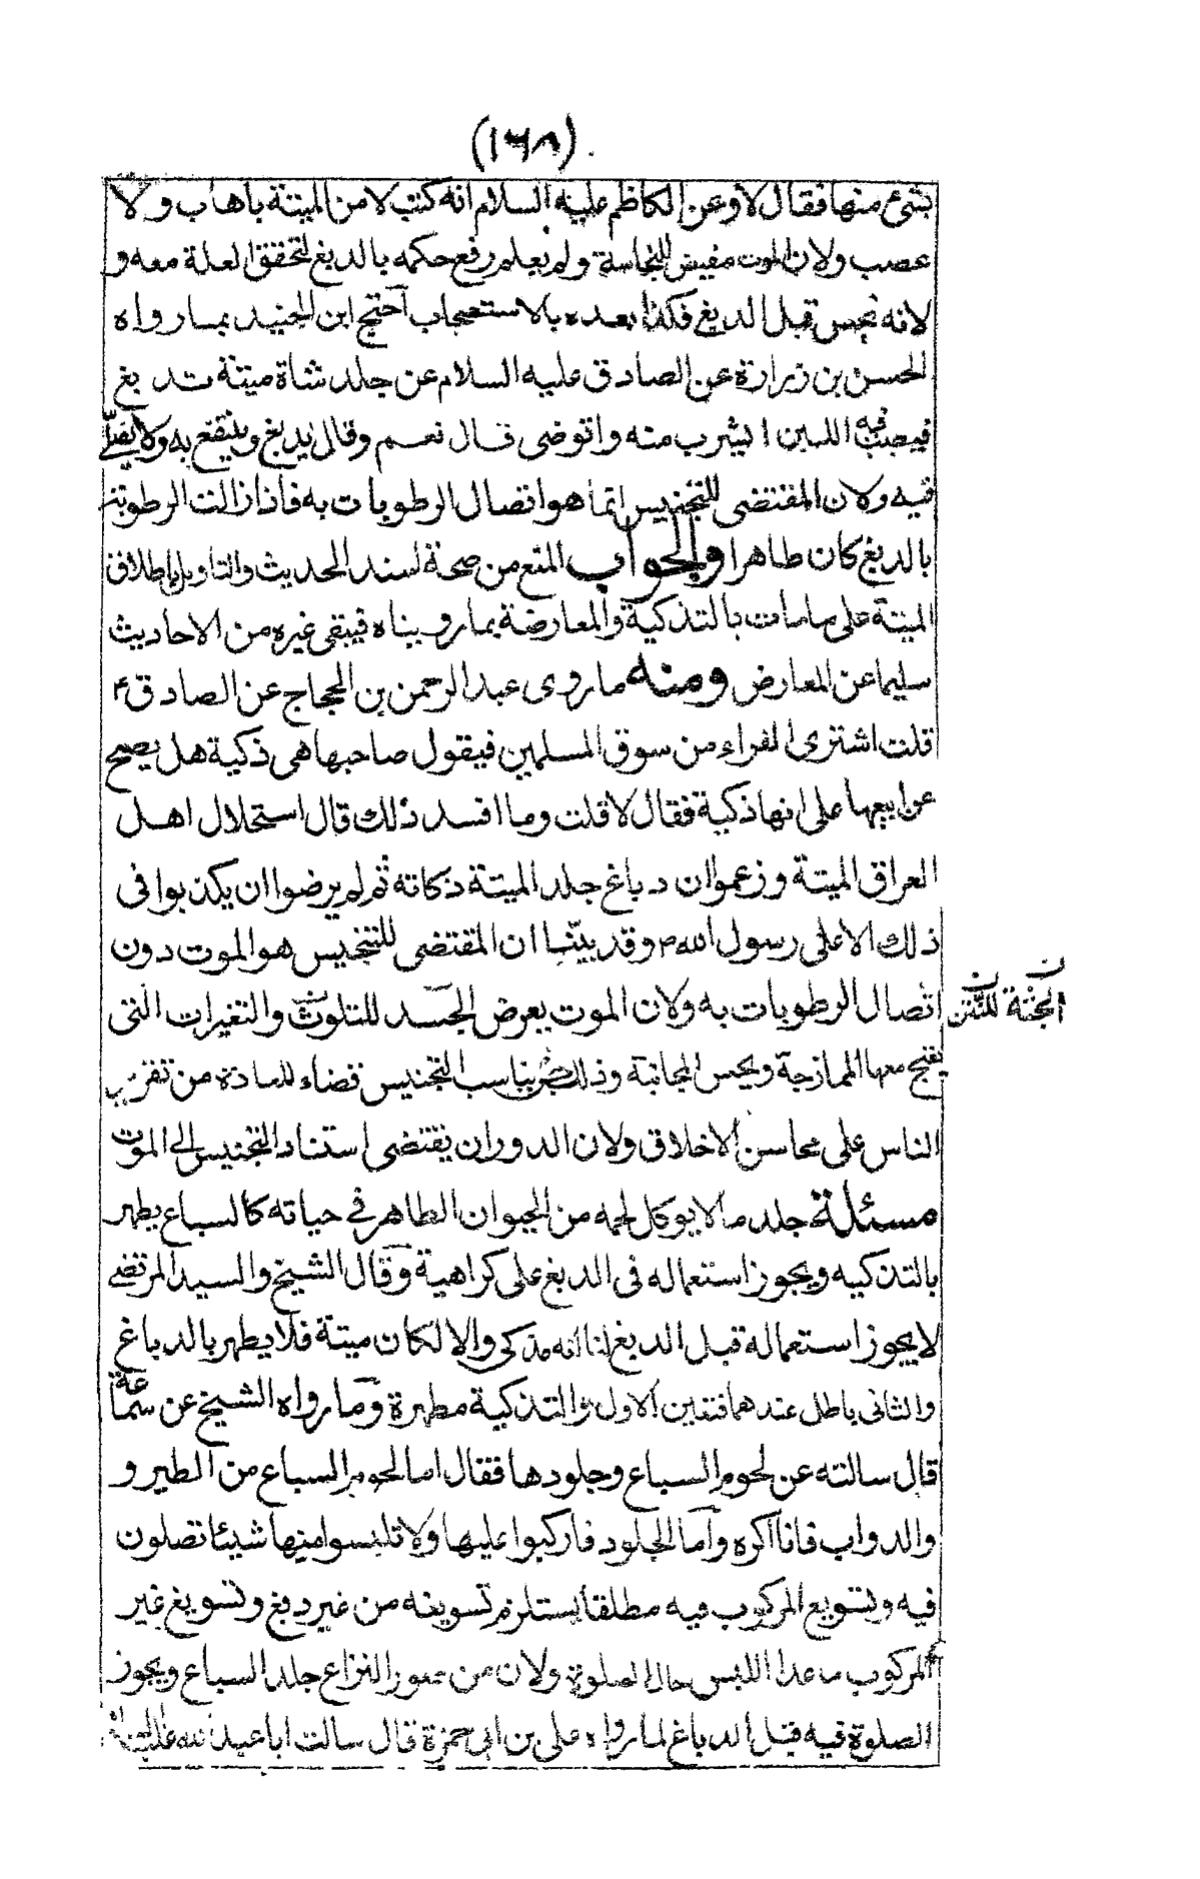 (١٦٨)
بشئ منها فقال لا وعن الكاظم عليه السلام انه كتب لا من الميتة باهاب ولا
عصب ولان الموت مفيض للنجاسة ولم يعلم رفع حكمه بالدبغ لتحقق العلة معه و
لانه نجس قبل الدبغ فكذا بعده بالاستصحاب احتج ابن الجنيد بما رواه
الحسن بن زرارة عن الصادق عليه السلام عن جلد شاة ميتة تدبغ
فيصب فيه اللبن اشرب منه واتوضى قال نعم وقال يدبغ وينتفع به ولا يصلى
فيه ولان المقتضى للتنجيس انما هو اتصال الرطوبات به فاذا زالت الرطوبة
بالدبغ كان طاهرا والجواب المنع من صحة سند الحديث والتاويل باطلاق
الميتة على ما مات بالتذكية والمعارضة بما رويناه فيبقى غيره من الاحاديث
سليما عن المعارض ومنه ما روى عبد الرحمن بن الحجاج عن الصادق ع
قلت اشترى الفراء من سوق المسلمين فيقول صاحبها هى ذكية هل يصح
عن ابيعها على انها ذكية فقال لا قلت وما افسد ذلك قال استحلال اهل
العراق الميتة وزعموا ان دباغ جلد الميتة ذكاته ثم لم يرضوا ان يكذبوا فى
ذلك الا على رسول الله ص وقد بينا ان المقتضى للتنجيس هو الموت دون
اتصال الرطوبات به ولان الموت يعرض الجسد للتلوث والتغيرات التى
الجثة للنتن
يقبح معها الممازجة ويحسن المجانبة وذلك يناسب التنجيس قضاء للعادة من تقريب
الناس على محاسن الاخلاق ولان الدوران يقتضى استناد التنجيس الى الموت
مسئلة جلد ما لا يوكل لحمه من الحيوان الطاهر فى حياته كالسباع يطهر
بالتذكيه ويجوز استعماله فى الدبغ على كراهية وقال الشيخ والسيد المرتضى
لا يجوز استعماله قبل الدبغ لنا انه مذكى والا لكان ميتة فلا يطهر بالدباغ
والثانى باطل عندهما فتعين الاول والتذكية مطهرة وما رواه الشيخ عن سماعة
قال سالته عن لحوم السباع وجلودها فقال اما لحوم السباع من الطير و
والدواب فانا اكره واما الجلود فاركبوا عليها ولا تلبسوا منها شيئا تصلون
فيه وتسويغ المركوب فيه مطلقا يستلزم تسويغه من غير دبغ وتسويغ غير
المركوب ما عدا اللبس حال الصلوة ولان من صور النزاع جلد السباع ويجوز
الصلوة فيه قبل الدباغ لما رواه على بن ابى حمزة قال سالت ابا عبد الله عليه السلام